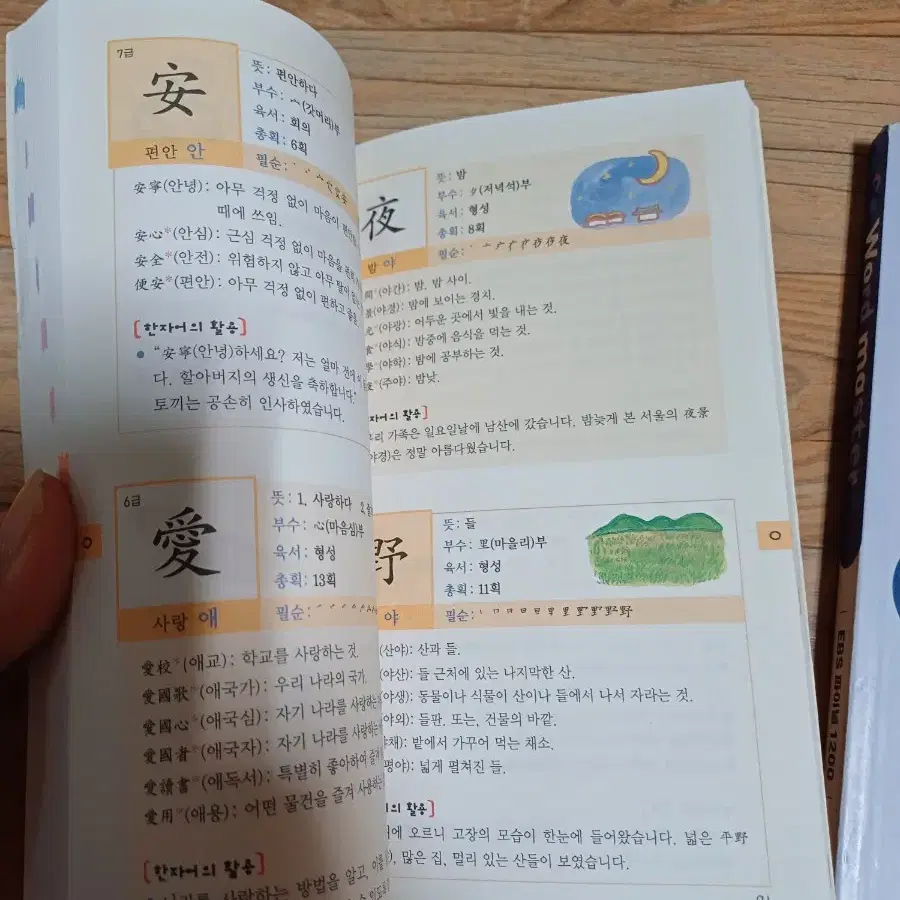 7급
安
편안 안
뜻: 편안하다
부수: 宀(갓머리)부
육서: 회의
총획: 6획
필순:
安寧(안녕): 아무 걱정 없이 마음이
때에 쓰임.
安心*(안심): 근심 걱정 없이 마음을
安全*(안전): 위험하지 않고 아무 탈이
便安*(편안): 아무 걱정 없이 편하고
[한자어의 활용]
● "安寧(안녕)하세요? 저는 얼마 전에
다. 할아버지의 생신을 축하합니다."
토끼는 공손히 인사하였습니다.
6급
愛
사랑 애
뜻: 1. 사랑하다 2.
부수: 心(마음심)부
육서: 형성
총획: 13획
필순:
愛校*(애교): 학교를 사랑하는 것.
愛國歌*(애국가): 우리 나라의 국가.
愛國心*(애국심): 자기 나라를 사랑하는
愛國者*(애국자): 자기 나라를 사랑하는
愛讀書*(애독서): 특별히 좋아하여 즐겨
愛用*(애용): 어떤 물건을 즐겨 사용하는
[한자어의 활용]
사랑하는 방법을 알고, 이를
夜
밤 야
뜻: 밤
부수: 夕(저녁석)부
육서: 형성
총획: 8획
필순: 夜夜
(야간): 밤. 밤 사이.
(야경): 밤에 보이는 경치.
(야광): 어두운 곳에서 빛을 내는 것.
(야식): 밤중에 음식을 먹는 것.
(야학): 밤에 공부하는 것.
(주야): 밤낮.
한자어의 활용]
우리 가족은 일요일날에 남산에 갔습니다. 밤늦게 본 서울의 夜景
(야경)은 정말 아름다웠습니다.
野
야
뜻: 들
부수: 里(마을리)부
육서: 형성
총획: 11획
필순: 野野
(산야): 산과 들.
(야산): 들 근처에 있는 나지막한 산.
(야생): 동물이나 식물이 산이나 들에서 나서 자라는 것.
(야외): 들판, 또는, 건물의 바깥.
(야채): 밭에서 가꾸어 먹는 채소.
(평야): 넓게 펼쳐진 들.
의 활용]
에 오르니 고장의 모습이 한눈에 들어왔습니다. 넓은 平野
, 많은 집, 멀리 있는 산들이 보였습니다.
ㅇ
ㅇ
Word master
EBS 파이널 1200